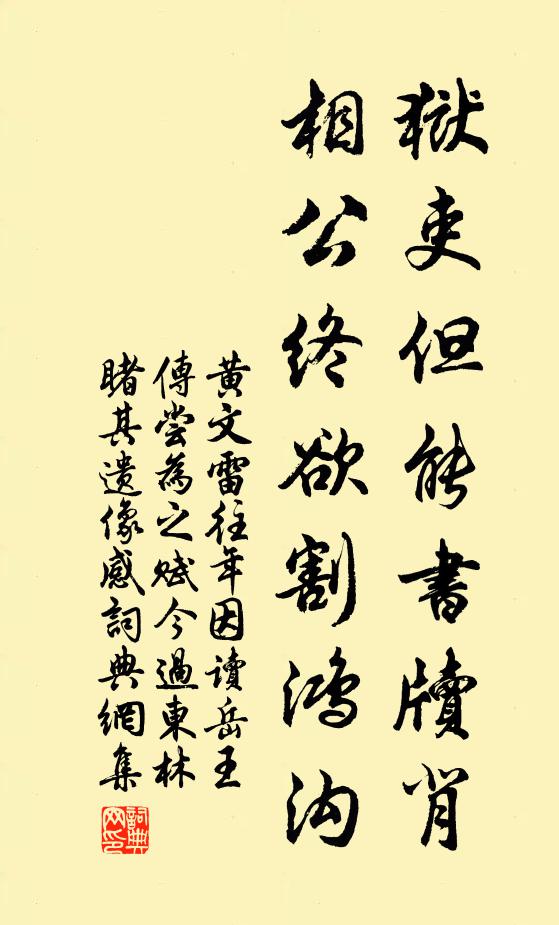 獄吏但能書牘背
相公終欲割鴻沟
黄文雷往年因讀岳王
傳嘗為之賦今過東林
睹其遺像感詞典網集
詞典网印